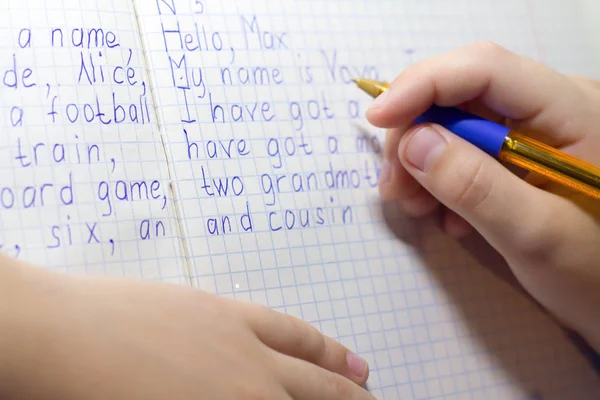 a name,
de, Nice,
a football
train,
oard game,
, six, an
N 3
Hello, Max
My name is Vova
I have got a
have got a
two grandmot
and cousin